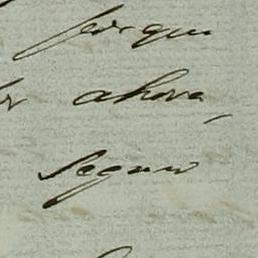 porque
ahora,
seguro